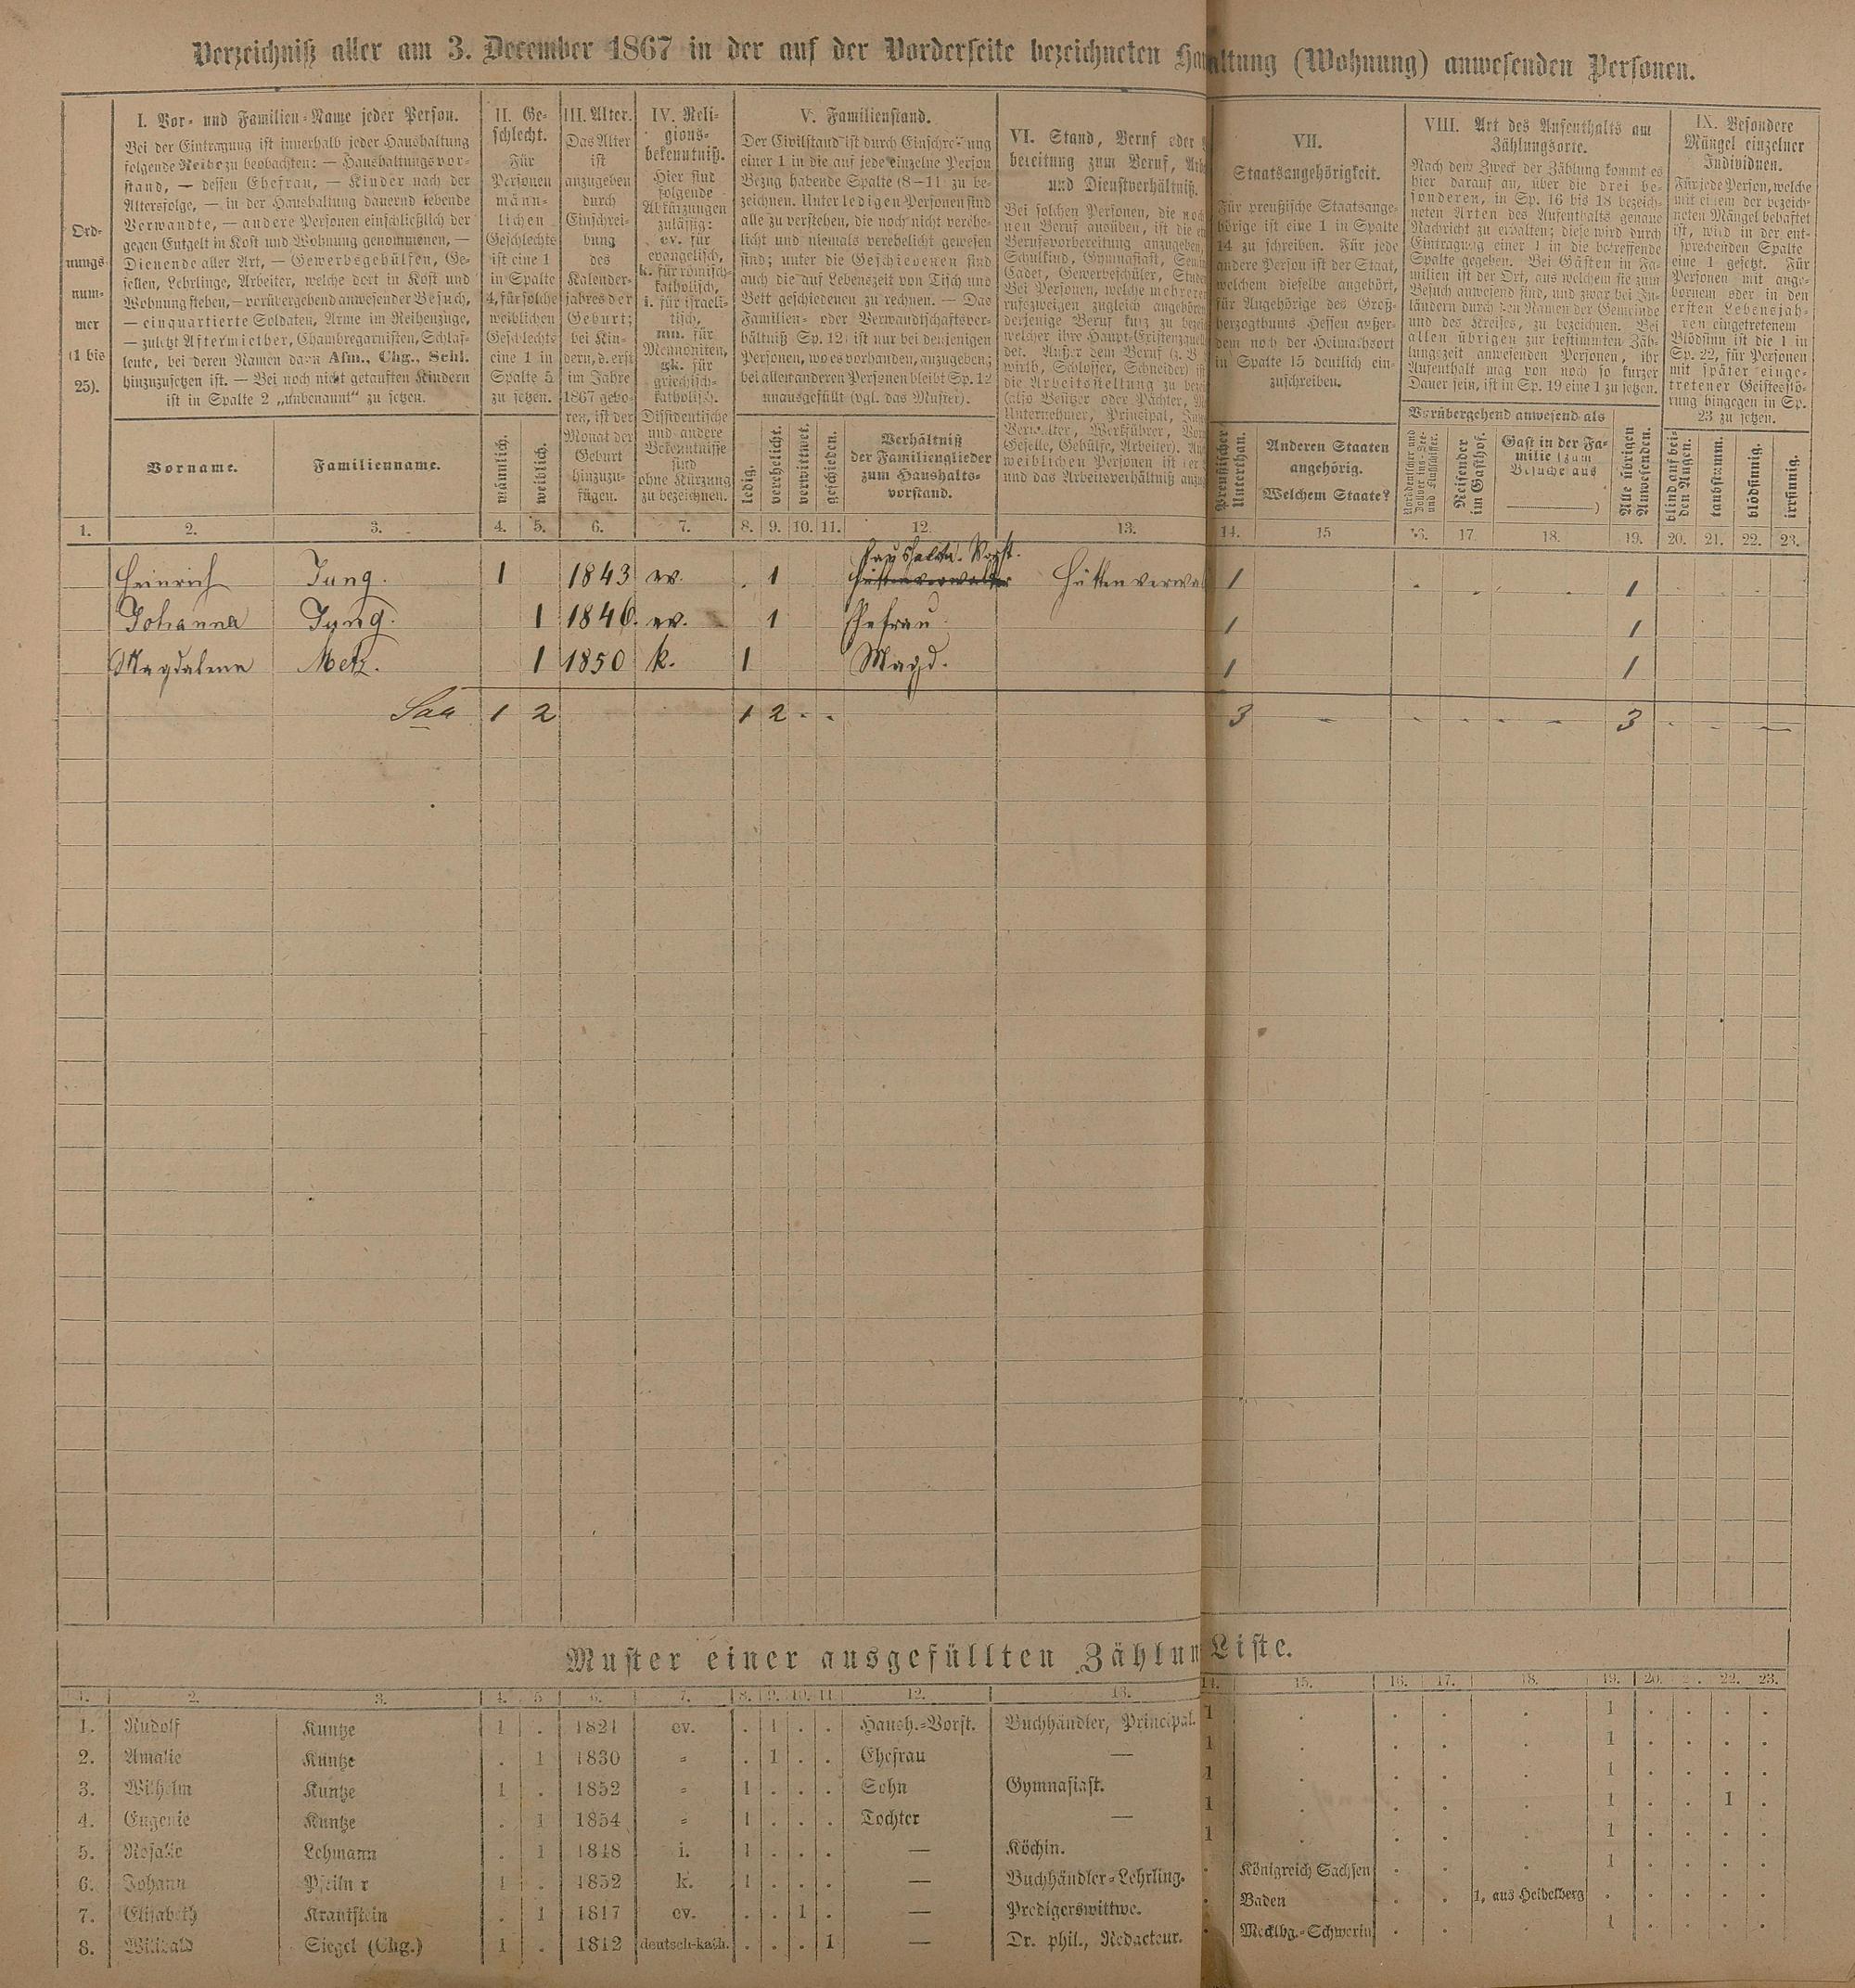 Verzeichniß aller am 3. December 1867 in der auf der Vorderseite bezeichneten Haushaltung (Wohnung) anwesenden Personen.
Ord-
nungs-
num-
mer
(1 bis
25).
I. Vor- und Familien-Name jeder Person.
Bei der Eintragung ist innerhalb jeder Haushaltung
folgende Reihe zu beobachten: — Haushaltungsvor-
stand, — dessen Ehefrau, — Kinder nach der
Altersfolge, — in der Haushaltung dauernd lebende
Verwandte, — andere Personen einschließlich der
gegen Entgelt in Kost und Wohnung genommenen, —
Dienende aller Art, — Gewerbsgehülfen, Ge-
sellen, Lehrlinge, Arbeiter, welche dort in Kost und
Wohnung stehen, — vorübergehend anwesender Besuch,
— einquartierte Soldaten, Arme im Reihenzuge,
— zuletzt Aftermiether, Chambregarnisten, Schlaf-
leute, bei deren Namen dann Afm., Chg., Schl.
hinzuzusetzen ist. — Bei noch nicht getauften Kindern
ist in Spalte 2 „unbenannt" zu setzen.
Vorname.
Familienname.
II. Ge-
schlecht.
Für
Personen
männ-
lichen
Geschlechts
ist eine 1
in Spalte
4, für solche
weiblichen
Geschlechts
eine 1 in
Spalte 5
zu setzen.
männlich.
weiblich.
III. Alter.
Das Alter
ist
anzugeben
durch
Einschrei-
bung
des
Kalender-
jahres der
Geburt;
bei Kin-
dern, d. erst
im Jahre
1867 gebo-
ren, ist der
Monat der
Geburt
hinzuzu-
fügen.
IV. Reli-
gions-
bekenntniß.
Hier sind
folgende
Abkürzungen
zulässig:
ev. für
evangelisch,
k. für römisch-
katholisch,
i. für israeli-
tisch,
mn. für
Mennoniten,
gk. für
griechisch-
katholisch.
Dissidentische
und andere
Bekenntnisse
sind
ohne Kürzung
zu bezeichnen.
V. Familienstand.
Der Civilstand ist durch Einschreibung
einer 1 in die auf jede einzelne Person
Bezug habende Spalte (8—11) zu be-
zeichnen. Unter ledigen Personen sind
alle zu verstehen, die noch nicht verehe-
licht und niemals verehelicht gewesen
sind; unter die Geschiedenen sind
auch die auf Lebenszeit von Tisch und
Bett geschiedenen zu rechnen. — Das
Familien- oder Verwandtschaftsver-
hältniß Sp. 12 ist nur bei denjenigen
Personen, wo es vorhanden, anzugeben;
bei allen anderen Personen bleibt Sp. 12
unausgefüllt (vgl. das Muster).
ledig.
verehelicht.
verwittwet.
geschieden.
Verhältniß
der Familienglieder
zum Haushalts-
vorstand.
VI. Stand, Beruf oder
bereitung zum Beruf,
und Dienstverhältniß.
Bei solchen Personen, die noch
nen Beruf ausüben, ist die
Berufsvorbereitung anzugeben,
Schulkind, Gymnasiast,
Cadet, Gewerbeschüler,
Bei Personen, welche mehreren
rufszweigen zugleich angehören
derjenige Beruf kurz zu
welcher ihre Haupt-Existenzquelle
det. Außer dem Beruf (z. B.
wirth, Schlosser, Schneider)
die Arbeitsstellung zu
(also Besitzer oder Pächter,
Unternehmer, Principal,
Verwalter, Werkführer,
Geselle, Gehülfe, Arbeiter).
weiblichen Personen ist der
und das Arbeitsverhältniß
VII.
Staatsangehörigkeit.
Für preußische Staatsange-
hörige ist eine 1 in Spalte
14 zu schreiben. Für jede
andere Person ist der Staat,
welchem dieselbe angehört,
für Angehörige des Groß-
herzogthums Hessen außer-
dem noch der Heimathsort
in Spalte 15 deutlich ein-
zuschreiben.
Preußischer
Unterthan.
Anderen Staaten
angehörig.
Welchem Staate?
VIII. Art des Aufenthalts am
Zählungsorte.
Nach dem Zweck der Zählung kommt es
hier darauf an, über die drei be-
sonderen, in Sp. 16 bis 18 bezeich-
neten Arten des Aufenthalts genaue
Nachricht zu erhalten; diese wird durch
Eintragung einer 1 in die betreffende
Spalte gegeben. Bei Gästen in Fa-
milien ist der Ort, aus welchem sie zum
Besuch anwesend sind, und zwar bei In-
ländern durch den Namen der Gemeinde
und des Kreises, zu bezeichnen. Bei
allen übrigen zur bestimmten Zäh-
lungszeit anwesenden Personen, ihr
Aufenthalt mag von noch so kurzer
Dauer sein, ist in Sp. 19 eine 1 zu setzen.
Vorübergehend anwesend als
Norddeutscher und
Zollvereins-See-
und Flußschiffer.
Reisender
im Gasthof.
Gast in der Fa-
milie (zum
Besuche aus
)
Alle übrigen
Anwesenden.
IX. Besondere
Mängel einzelner
Individuen.
Für jede Person, welche
mit einem der bezeich-
neten Mängel behaftet
ist, wird in der ent-
sprechenden Spalte
eine 1 gesetzt. Für
Personen mit ange-
bornem oder in den
ersten Lebensjah-
ren eingetretenem
Blödsinn ist die 1 in
Sp. 22, für Personen
mit später einge-
tretener Geistesstö-
rung hingegen in Sp.
23 zu setzen.
blind auf bei-
den Augen.
taubstumm.
blödsinnig.
irrsinnig.
1. 2. 3. 4. 5. 6. 7. 8. 9. 10. 11. 12. 13. 14. 15 16. 17. 18. 19. 20. 21. 22. 23.
Haushalts. Vorst.
Heinrich Jung. 1 1843 ev. . 1 Hüttenverwalter Hüttenverwal 1 1
Johanna Jung. 1 1846. ev. 1 Ehefrau 1 1
Magdalena Metz. 1 1850 k. 1 Magd. 1 1
Saa 1 2 1 2 - - 3 - - - - - 3 - - -
Muster einer ausgefüllten Zählungs-Liste.
1. 2. 3. 4. 5. 6. 7. 8. 9. 10. 11. 12. 13. 14. 15. 16. 17. 18. 19. 20. 22. 23.
1. Rudolf Kuntze 1 . 1821 ev. . 1 . . Haush.-Vorst. Buchhändler, Principal. 1 . . . . 1 . . . .
2. Amalie Kuntze . 1 1830 „ . 1 . . Ehefrau — 1 . . . . 1 . . . .
3. Wilhelm Kuntze 1 . 1852 „ 1 . . . Sohn Gymnasiast. 1 . . . . 1 . . . .
4. Eugenie Kuntze . 1 1854 „ 1 . . . Tochter — 1 . . . . 1 . . 1 .
5. Rosalie Lehmann . 1 1848 i. 1 . . . — Köchin. 1 . . . . 1 . . . .
6. Johann Pfeilner 1 . 1852 k. 1 . . . — Buchhändler-Lehrling. . Königreich Sachsen . . . 1 . . . .
7. Elisabeth Krautstein . 1 1817 ev. . . 1 . — Predigerswittwe. . Baden . . 1, aus Heidelberg . . . . .
8. Willibald Siegel (Chg.) 1 . 1812 deutsch-kath. . . . 1 — Dr. phil., Redacteur. . Mecklbg.-Schwerin . . . 1 . . . .